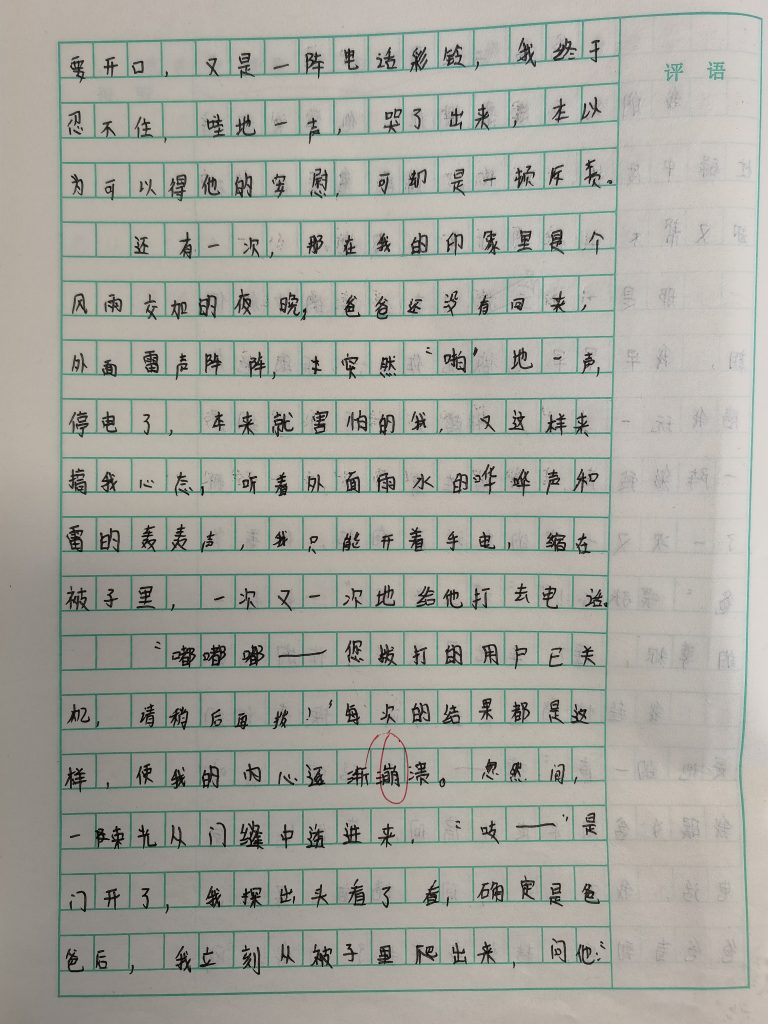 评语
要开口，又是一阵电话彩铃，我终于
忍不住，哇地一声，哭了出来，本以
为可以得他的安慰，可却是一顿斥责。
还有一次，那在我的印象里是个
风雨交加的夜晚，爸爸还没有回来，
外面雷声阵阵，突然“啪”地一声，
停电了，本来就害怕的我，又这样来
搞我心态，听着外面雨水的哗哗声和
雷的轰轰声，我只能开着手电，缩在
被子里，一次又一次地给他打去电话。
“嘟嘟嘟——您拨打的用户已关
机，请稍后再拨！”每次的结果都是这
样，使我的内心逐渐崩溃。忽然间，
一束光从门缝中透进来，“吱——”是
门开了，我探出头看了看，确定是爸
爸后，我立刻从被子里爬出来，问他：“